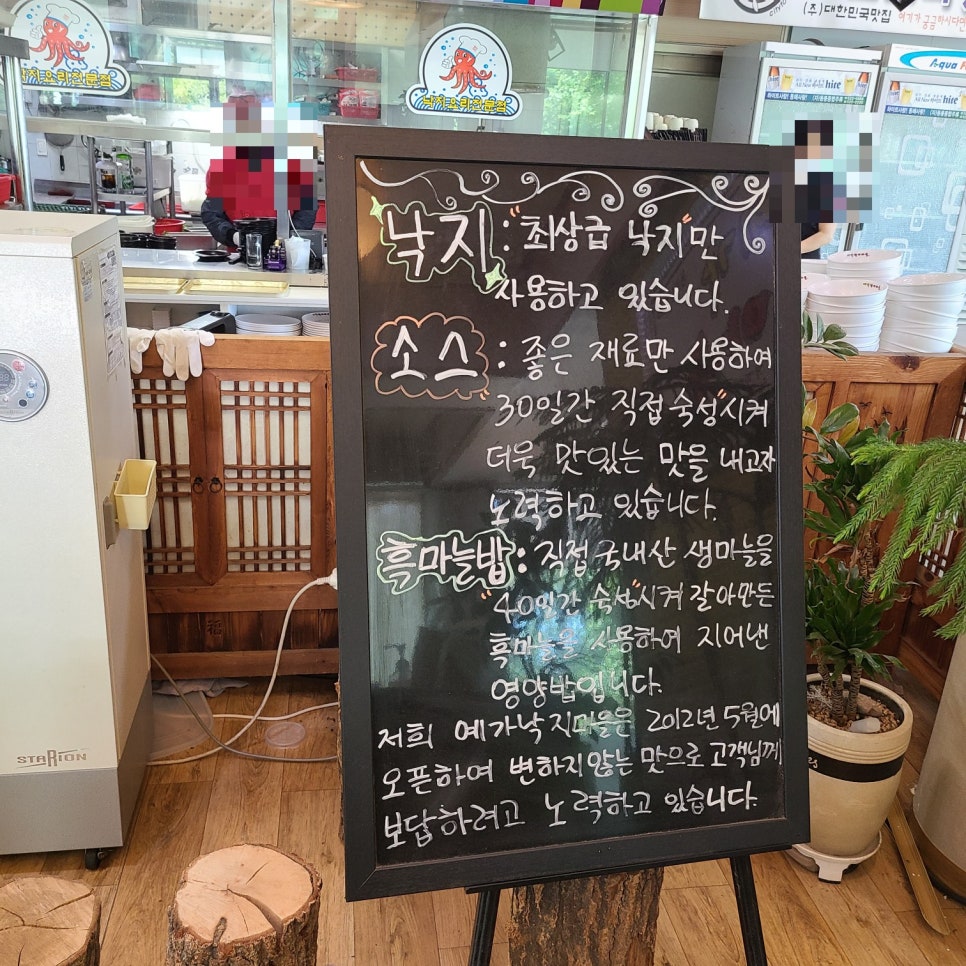 (주)대한민국맛집
낙지요리전문점
낙지요리전문점
hite
hite
낙지 : "최상급 낙지"만
사용하고 있습니다.
소스 : 좋은 재료만 사용하여
"30일간 직접 숙성"시켜
더욱 맛있는 맛을 내고자
노력하고 있습니다.
흑마늘밥 : 직접 국내산 생마늘을
"40일간 숙성"시켜 갈아만든
흑마늘을 사용하여 지어낸
영양밥입니다.
저희 예가낙지마을은 2012년 5월에
오픈하여 변하지않는 맛으로 고객님께
보답하려고 노력하고 있습니다.
STARION